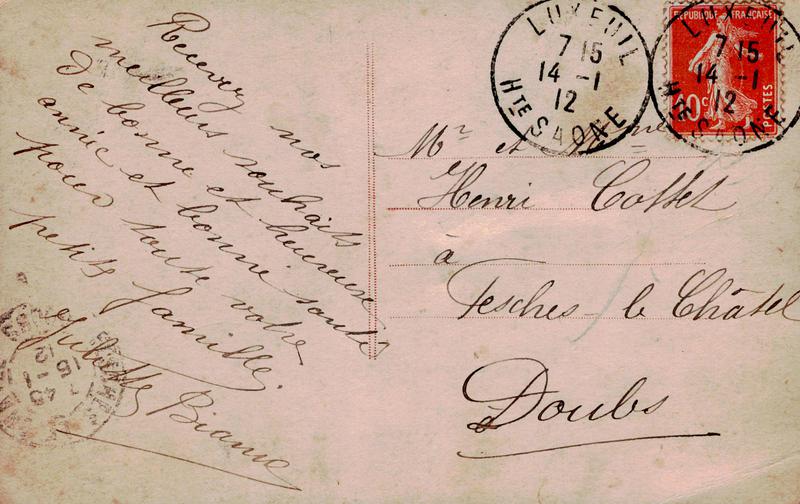 Recevez nos
meilleurs souhaits
de bonne et heureuse
année et bonne santé
pour toute votre
petite famille.
Juliette
LUXEUIL
7 15
14 -1
12
Hte SAONE
REPUBLIQUE FRANÇAISE
10c
POSTES
LUXEUIL
7 15
14 -1
12
Hte SAONE
Mr et Mme
Henri
à
Fesches-le-Châtel
Doubs